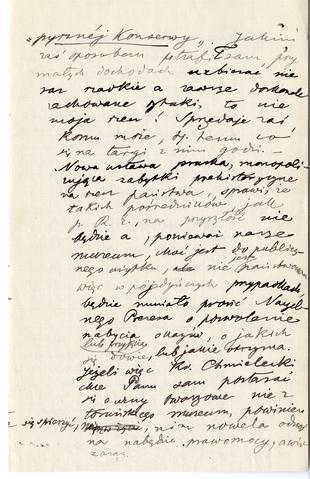 „pysznéj Konserwy". Jakim
zaś sposobem potrafi sam, przy
małych dochodach uzbierać nie
raz rzadkie a zawsze doskonale
zachowane ptaki, to nie
moja rzecz! Sprzedaje zaś
komu może, tj. temu co
się na targi z nim godzi. —
Nowa ustawa pruska, monopoli-
zująca zabytki prehistoryczne
na rzecz państwa, sprawi, że
takich pośredników, jak
p. R. i., na przyszłość nie
będzie a, ponieważ nasze
muzeum, choć jest do publicz-
nego użytku, nie jest państwowem
więc w pojedyńczych przypadkach
będzie musiało prosić Naczel-
nego Prezesa o pozwolenie
nabycia okazów, o jakich
lub przyszłości
się dowie, lub jakie otrzyma.
Jeżeli więc Chmielecki
chce Panu sam postarać
się o urny twarzowe nie z
toruńskiego muzeum, powinien
się spieszyć, nim nowela
na nabędzie prawomocy, a więc
zaraz.